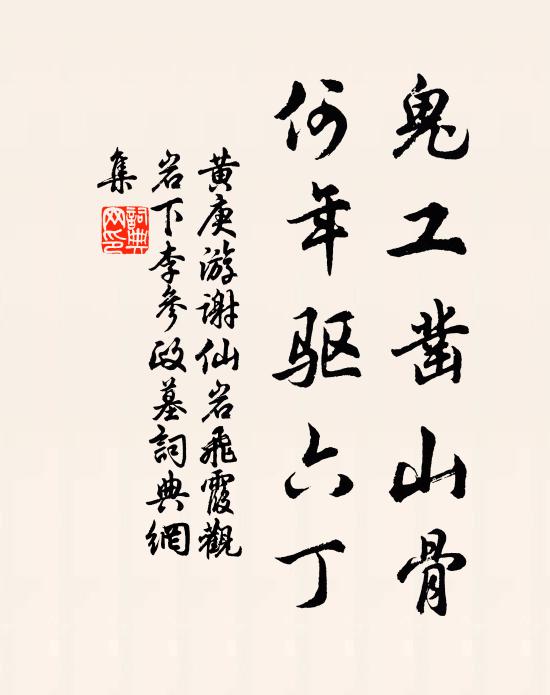 鬼工凿山骨
何年驱六丁
黄庚游谢仙岩飛霞觀
岩下李參政墓詞典網
集
詞典
网印